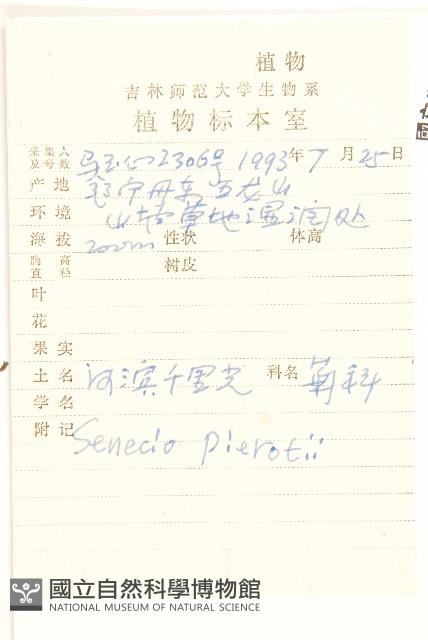 植物
吉林师范大学生物系
植物标本室
采集人及号数 2306号 1993年7月25日
产地 辽宁丹东五龙山
环境 山坡草地湿润处
海拔 200m 性状 体高
胸高直径 树皮
叶
花
果实
土名 河滨千里光 科名 菊科
学名
附记 Senecio Pierotii
國立自然科學博物館
NATIONAL MUSEUM OF NATURAL SCIENCE